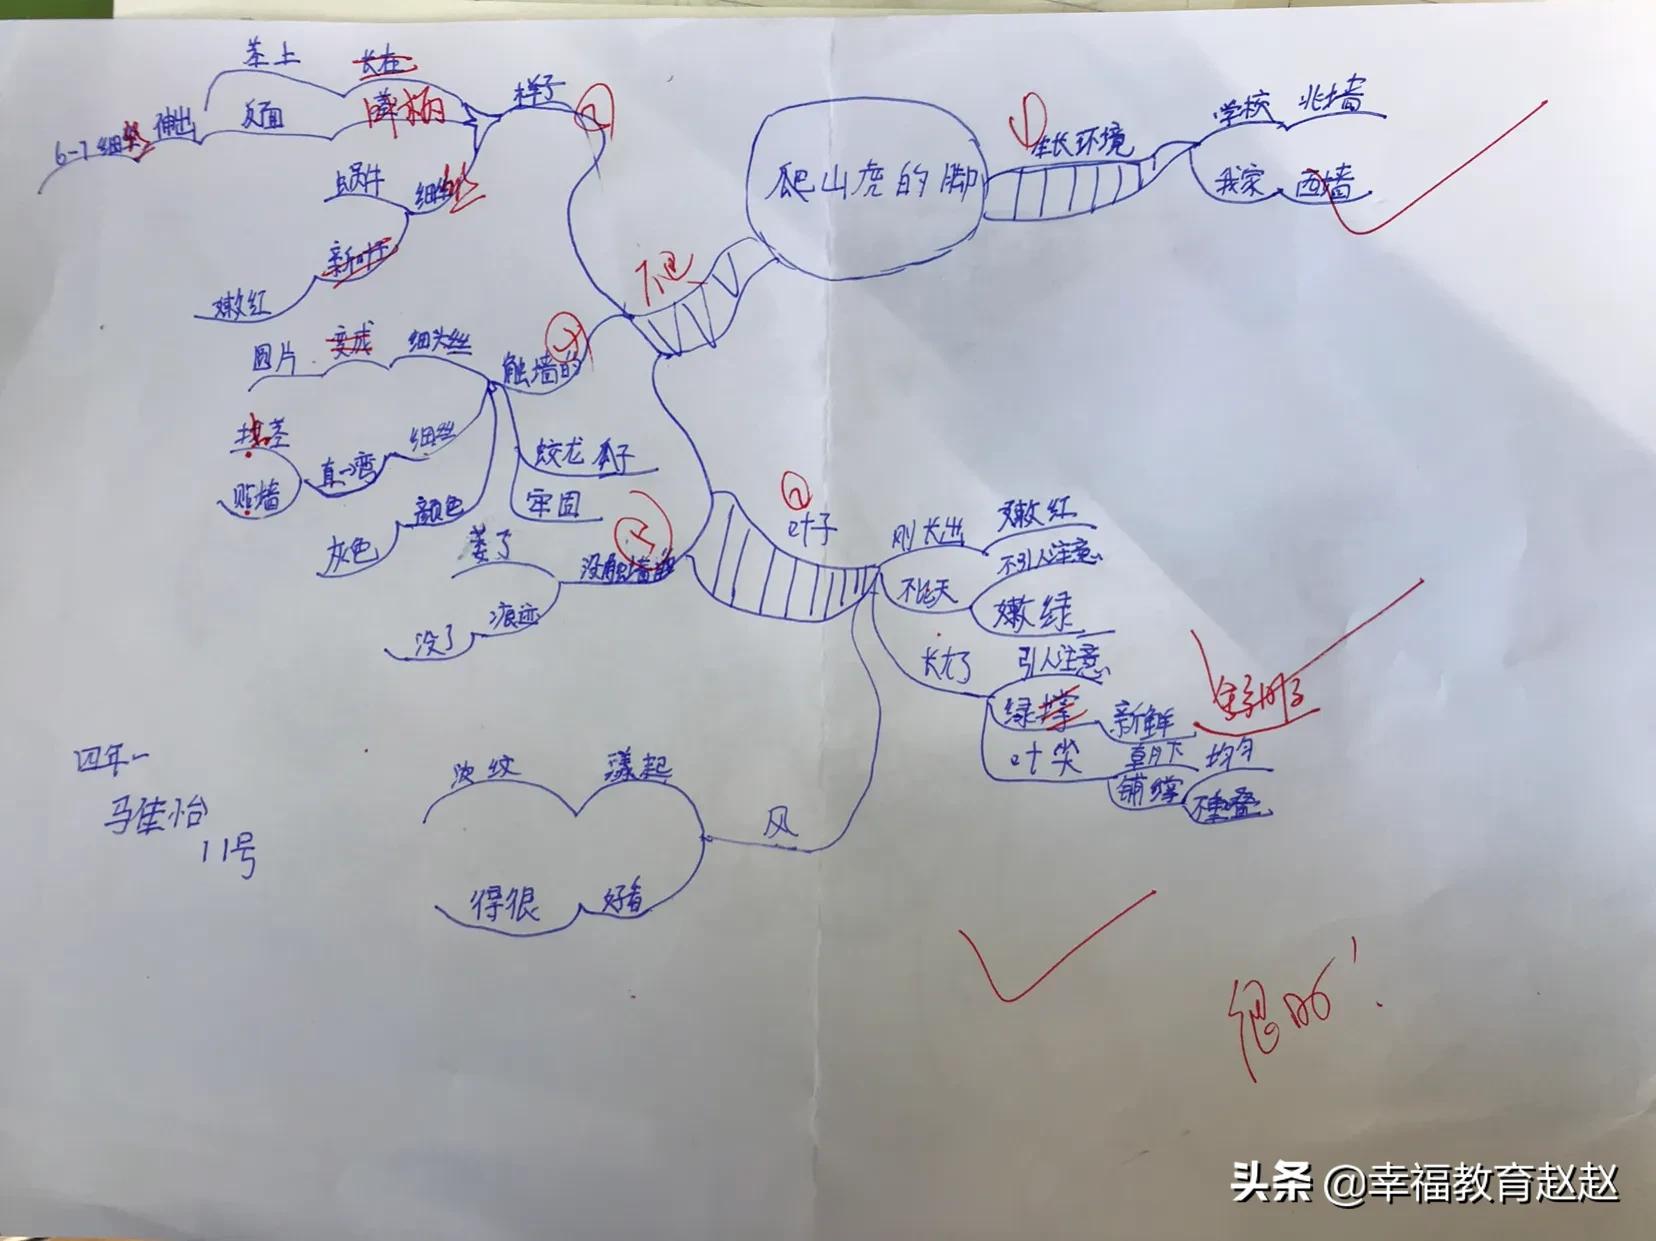 爬山虎的脚
①
生长环境
学校 北墙
我家 西墙
②
叶子
刚长出 嫩红
不几天 不引人注意
嫩绿
长大了 引人注意
绿 新鲜
叶尖 朝下 均匀
铺 不重叠
风
漾起 波纹
好看 得很
样子
茎上 长在
反面 叶柄
伸出
6-7 细丝
细丝 蜗牛
新叶子
嫩红
④
触墙的
细头丝 变成 圆片
细丝
直一弯
拉茎
贴墙
颜色
灰色
蛟龙爪子
牢固
⑤
没触墙的
萎了
痕迹
没了
四年一
马佳怡
11号
头条 @幸福教育赵赵